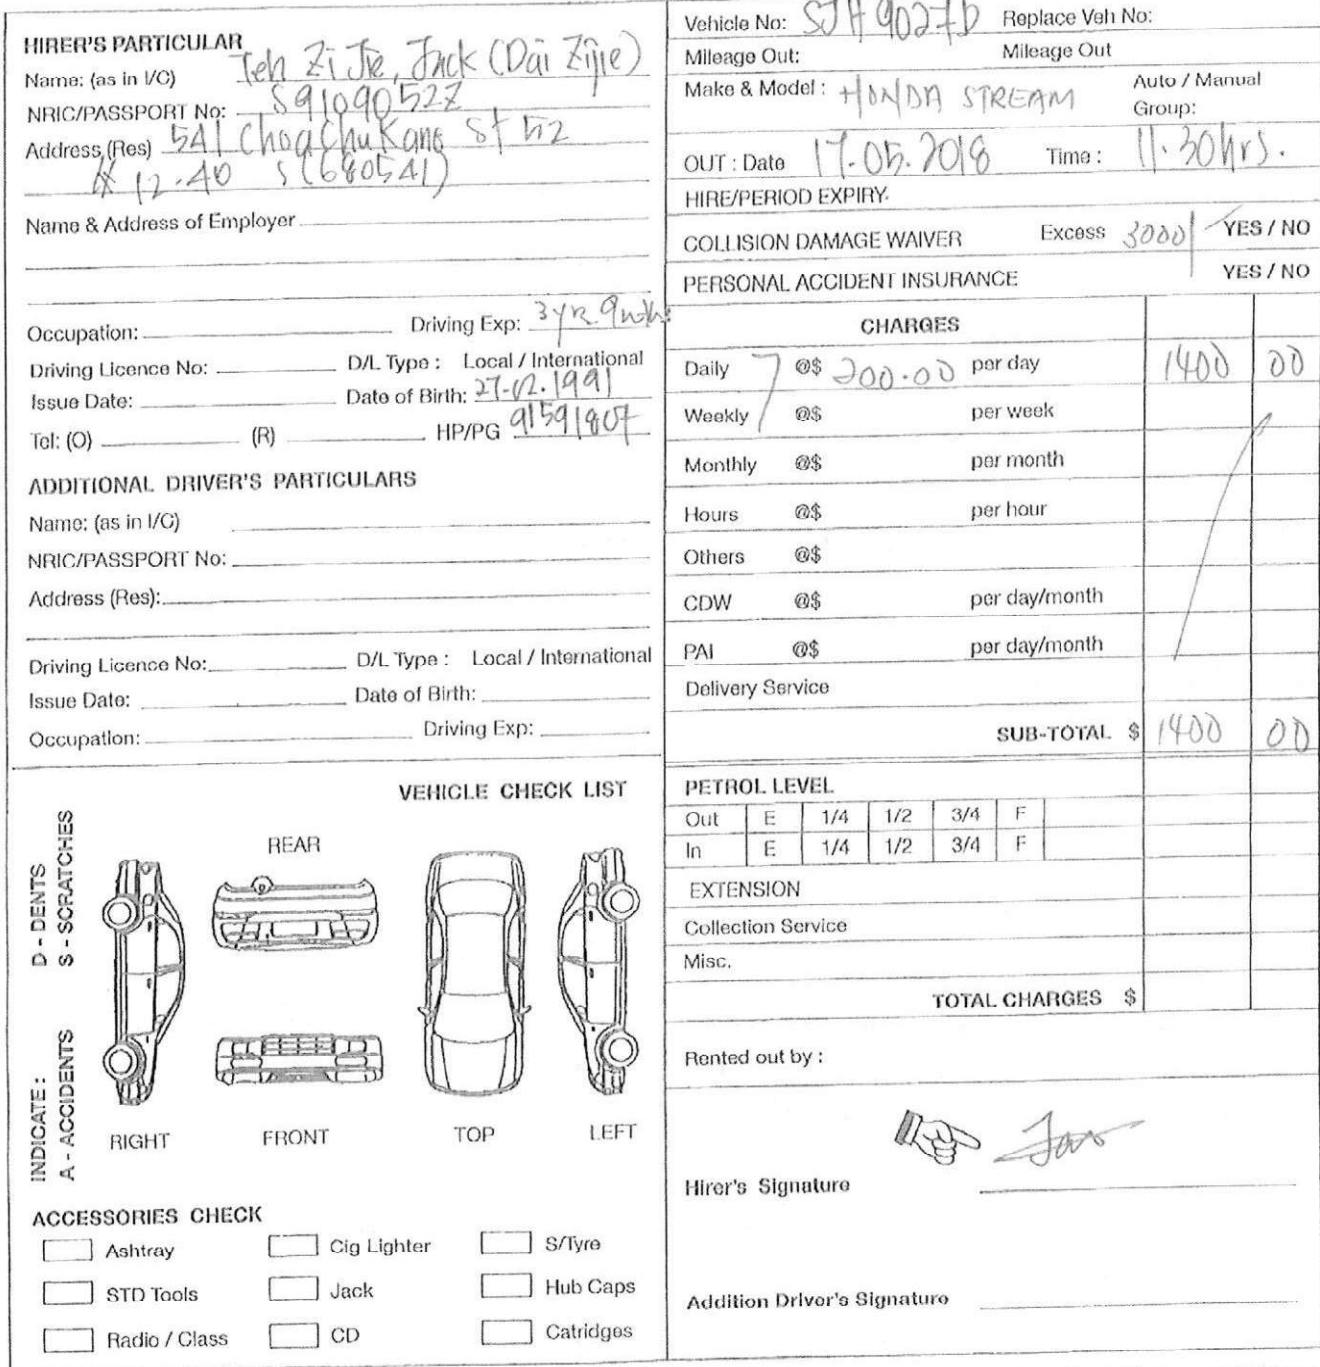 HIRER'S PARTICULAR
Name: (as in I/C) Teh Zi Jie, Jack (Dai Zijie)
NRIC/PASSPORT No: S9109052Z
Address (Res) 541 ChoaChuKang St 52
# 12-40 S(680541)
Name & Address of Employer
Occupation: Driving Exp: 3yrs 9mths
Driving Licence No: D/L Type : Local / International
Issue Date: Date of Birth: 27.02.1991
Tel: (O) (R) HP/PG 91591807
ADDITIONAL DRIVER'S PARTICULARS
Name: (as in I/C)
NRIC/PASSPORT No:
Address (Res):
Driving Licence No: D/L Type : Local / International
Issue Date: Date of Birth:
Occupation: Driving Exp:
VEHICLE CHECK LIST
INDICATE :
A - ACCIDENTS
D - DENTS
S - SCRATCHES
REAR
RIGHT FRONT TOP LEFT
ACCESSORIES CHECK
Ashtray Cig Lighter S/Tyre
STD Tools Jack Hub Caps
Radio / Class CD Catridges
Vehicle No: SJH 9027D Replace Veh No:
Mileage Out: Mileage Out
Make & Model : HONDA STREAM Auto / Manual
Group:
OUT : Date 17.05.2018 Time : 11.30hrs.
HIRE/PERIOD EXPIRY.
COLLISION DAMAGE WAIVER Excess 3000/ YES / NO
PERSONAL ACCIDENT INSURANCE YES / NO
CHARGES
Daily 7 @$ 200.00 per day 1400 00
Weekly @$ per week
Monthly @$ per month
Hours @$ per hour
Others @$
CDW @$ per day/month
PAI @$ per day/month
Delivery Service
SUB-TOTAL $ 1400 00
PETROL LEVEL
Out E 1/4 1/2 3/4 F
In E 1/4 1/2 3/4 F
EXTENSION
Collection Service
Misc.
TOTAL CHARGES $
Rented out by :
Hirer's Signature
Addition Driver's Signature